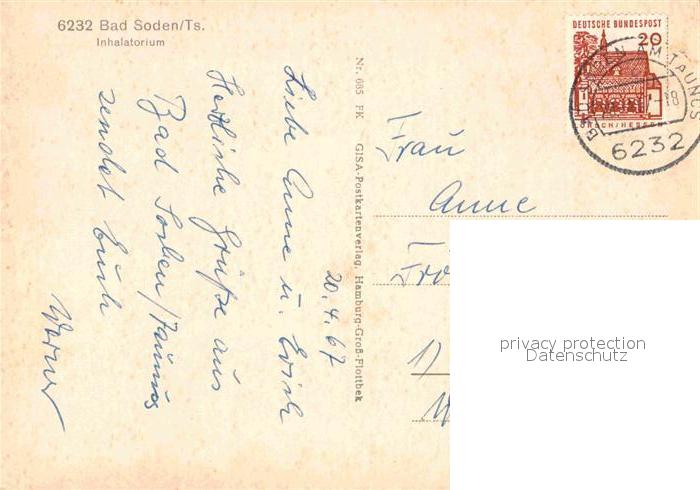 6232 Bad Soden/Ts.
Inhalatorium
20.4.67
Liebe Anne u. Erich
Herzliche Grüße aus
Bad Soden/Taunus
sendet Euch
Werner
Nr. 685 FK GISA-Postkartenverlag, Hamburg-Groß-Flottbek
DEUTSCHE BUNDESPOST
20
LORSCH/HESSEN
AM TAUNUS
18
6232
Frau
Anne
privacy protection
Datenschutz